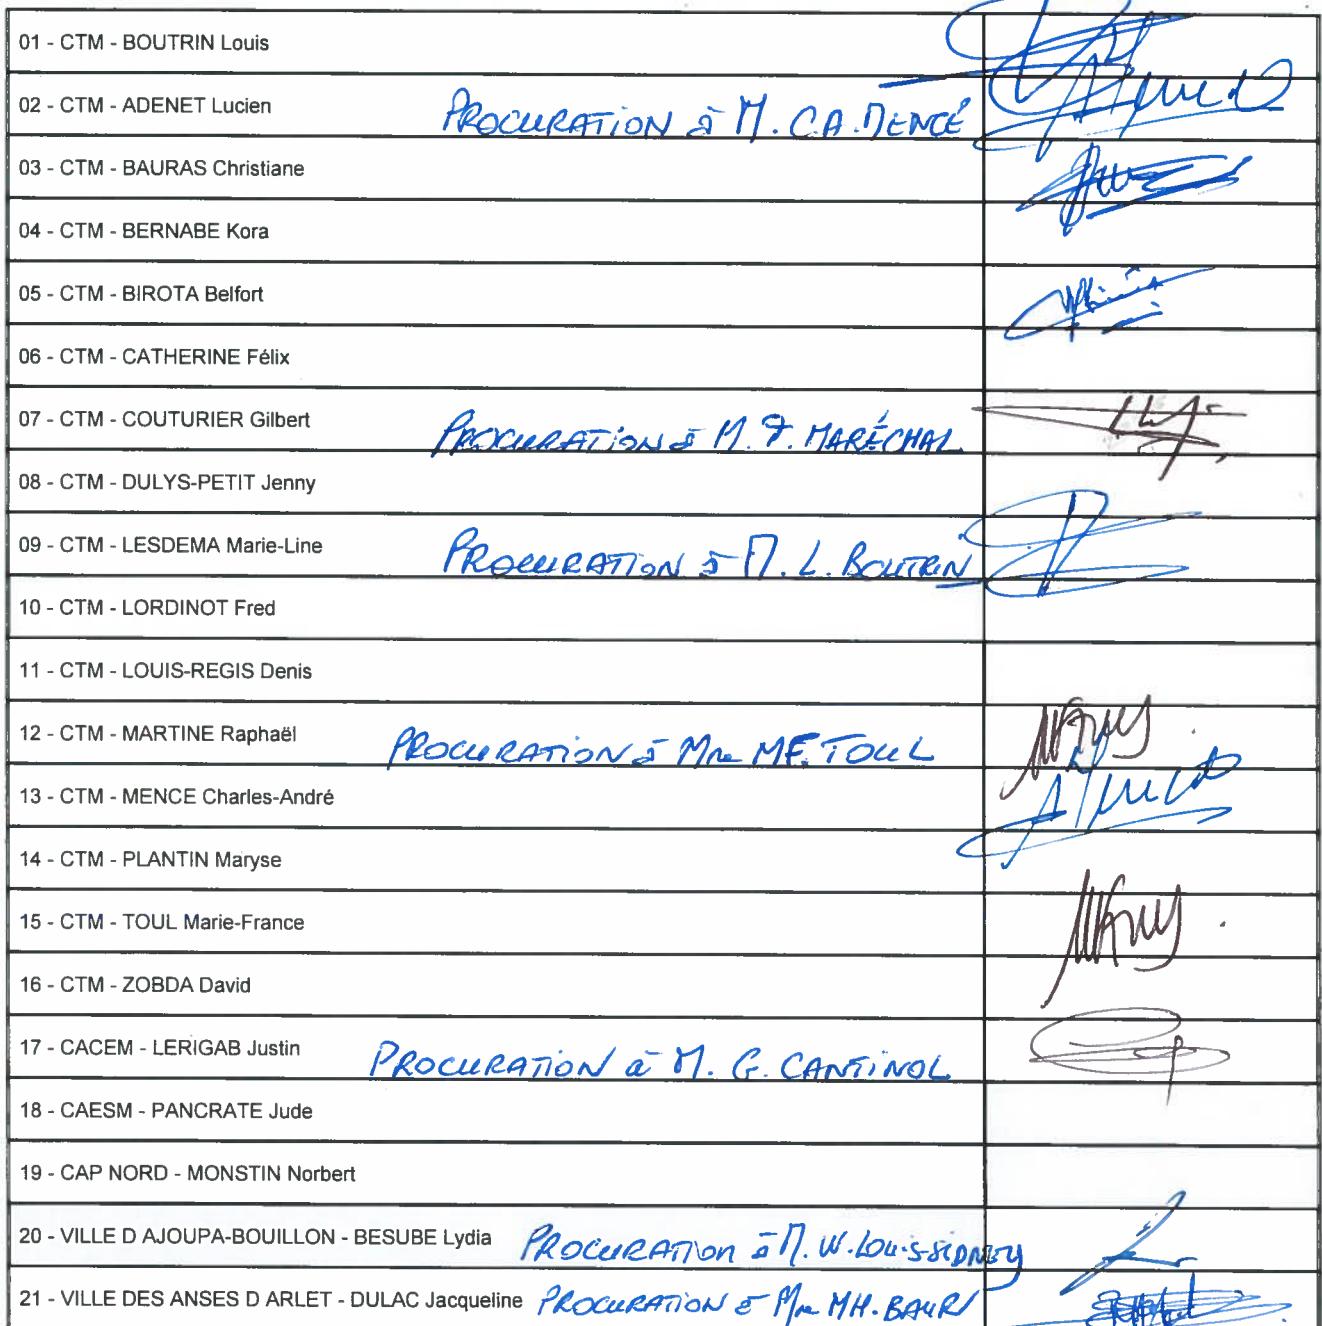 01 - CTM - BOUTRIN Louis
02 - CTM - ADENET Lucien PROCURATION à M. C.A. MENCÉ
03 - CTM - BAURAS Christiane
04 - CTM - BERNABE Kora
05 - CTM - BIROTA Belfort
06 - CTM - CATHERINE Félix
07 - CTM - COUTURIER Gilbert PROCURATION à M. F. MARÉCHAL
08 - CTM - DULYS-PETIT Jenny
09 - CTM - LESDEMA Marie-Line PROCURATION à M. L. BOUTRIN
10 - CTM - LORDINOT Fred
11 - CTM - LOUIS-REGIS Denis
12 - CTM - MARTINE Raphaël PROCURATION à Mme MF. TOUL
13 - CTM - MENCE Charles-André
14 - CTM - PLANTIN Maryse
15 - CTM - TOUL Marie-France
16 - CTM - ZOBDA David
17 - CACEM - LERIGAB Justin PROCURATION à M. G. CANTINOL
18 - CAESM - PANCRATE Jude
19 - CAP NORD - MONSTIN Norbert
20 - VILLE D AJOUPA-BOUILLON - BESUBE Lydia PROCURATION à M. W. LOUIS-SIDNEY
21 - VILLE DES ANSES D ARLET - DULAC Jacqueline PROCURATION à Mme MH.